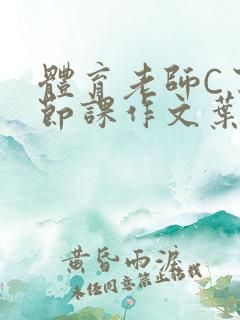 體育老師C了
節課作文葉
黃昏雨淚
未經同意禁止轉載